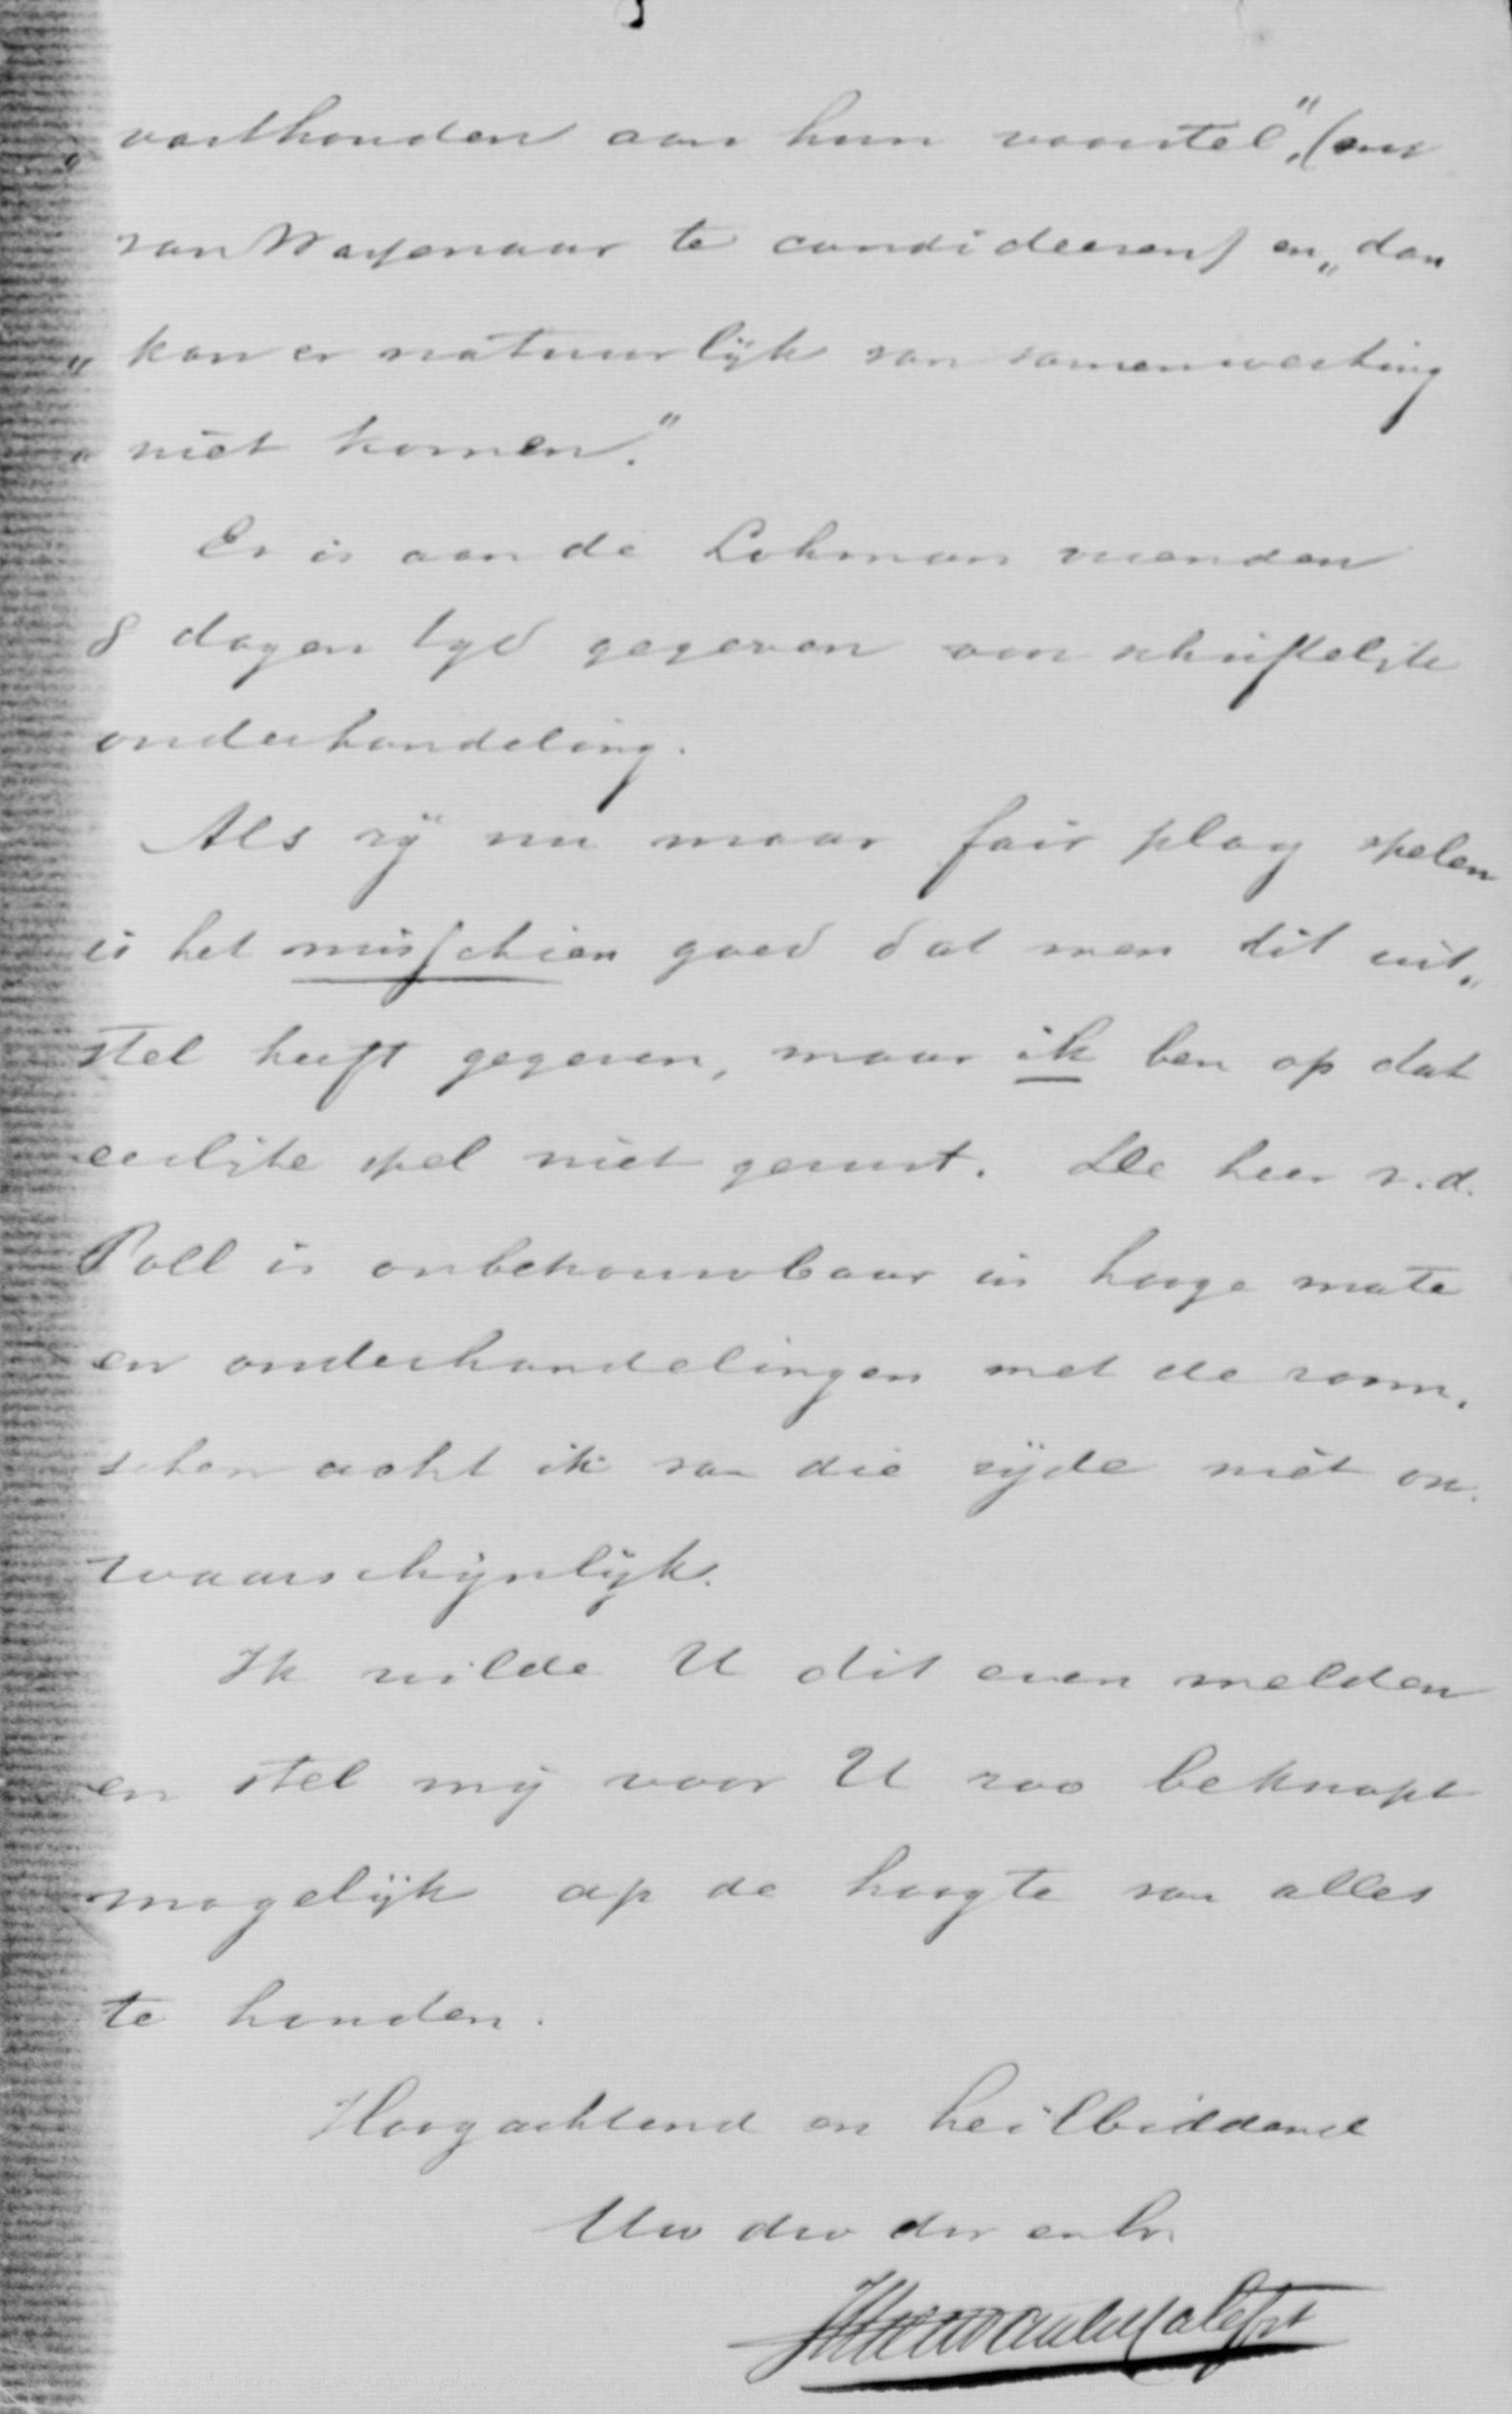 „ vasthouden aan hun voorstel", (om
van Wassenaar te candideeren) en „dan
„ kan er natuurlijk van samenwerking
„ niet komen."
Er is aan de Lohman vrienden
8 dagen tyd gegeven om schriftelijke
onderhandeling.
Als zij nu maar fair play spelen
is het misschien goed dat men dit uit„
stel heeft gegeven, maar ik ben op dat
eerlijke spel niet gerust. De heer v.d.
Poll is onbetrouwbaar in hooge mate
en onderhandelingen met de room„
schen acht ik van die zijde niet on„
waarschijnlijk.
Ik wilde U dit even melden
en stel mij voor U zoo beknopt
mogelijk op de hoogte van alles
te houden.
Hoogachtend en heilbiddend
Uw dw dr en br